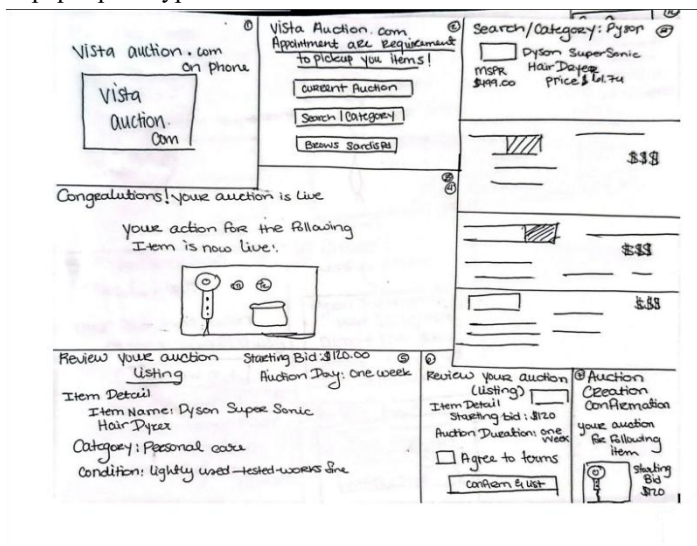 Vista auction.com
on phone
Vista
auction.
com
Vista Auction.com
Appointment are Requirement
to pickup you items!
current Auction
Search / Category
Search/Category: Pyson
Dyson SuperSonic
Hair Dryer
MSPR
$499.00
price $61.74
$$$
$$$
$$$
Congralutions! your auction is live
your action for the following
Item is now live:
Review your auction
listing
Starting Bid: $120.00
Auction Day: one week
Item Detail
Item Name: Dyson Super Sonic
Hair Dyrer
Category: Personal care
Condition: lightly used - tested - works fine
Review your auction
(listing)
Item Detail
Starting bid: $120
Auction Duration: one
week
Agree to terms
Confirm & list
Auction
Creation
Confirmation
your auction
for following
item
Starting
Bid
$120